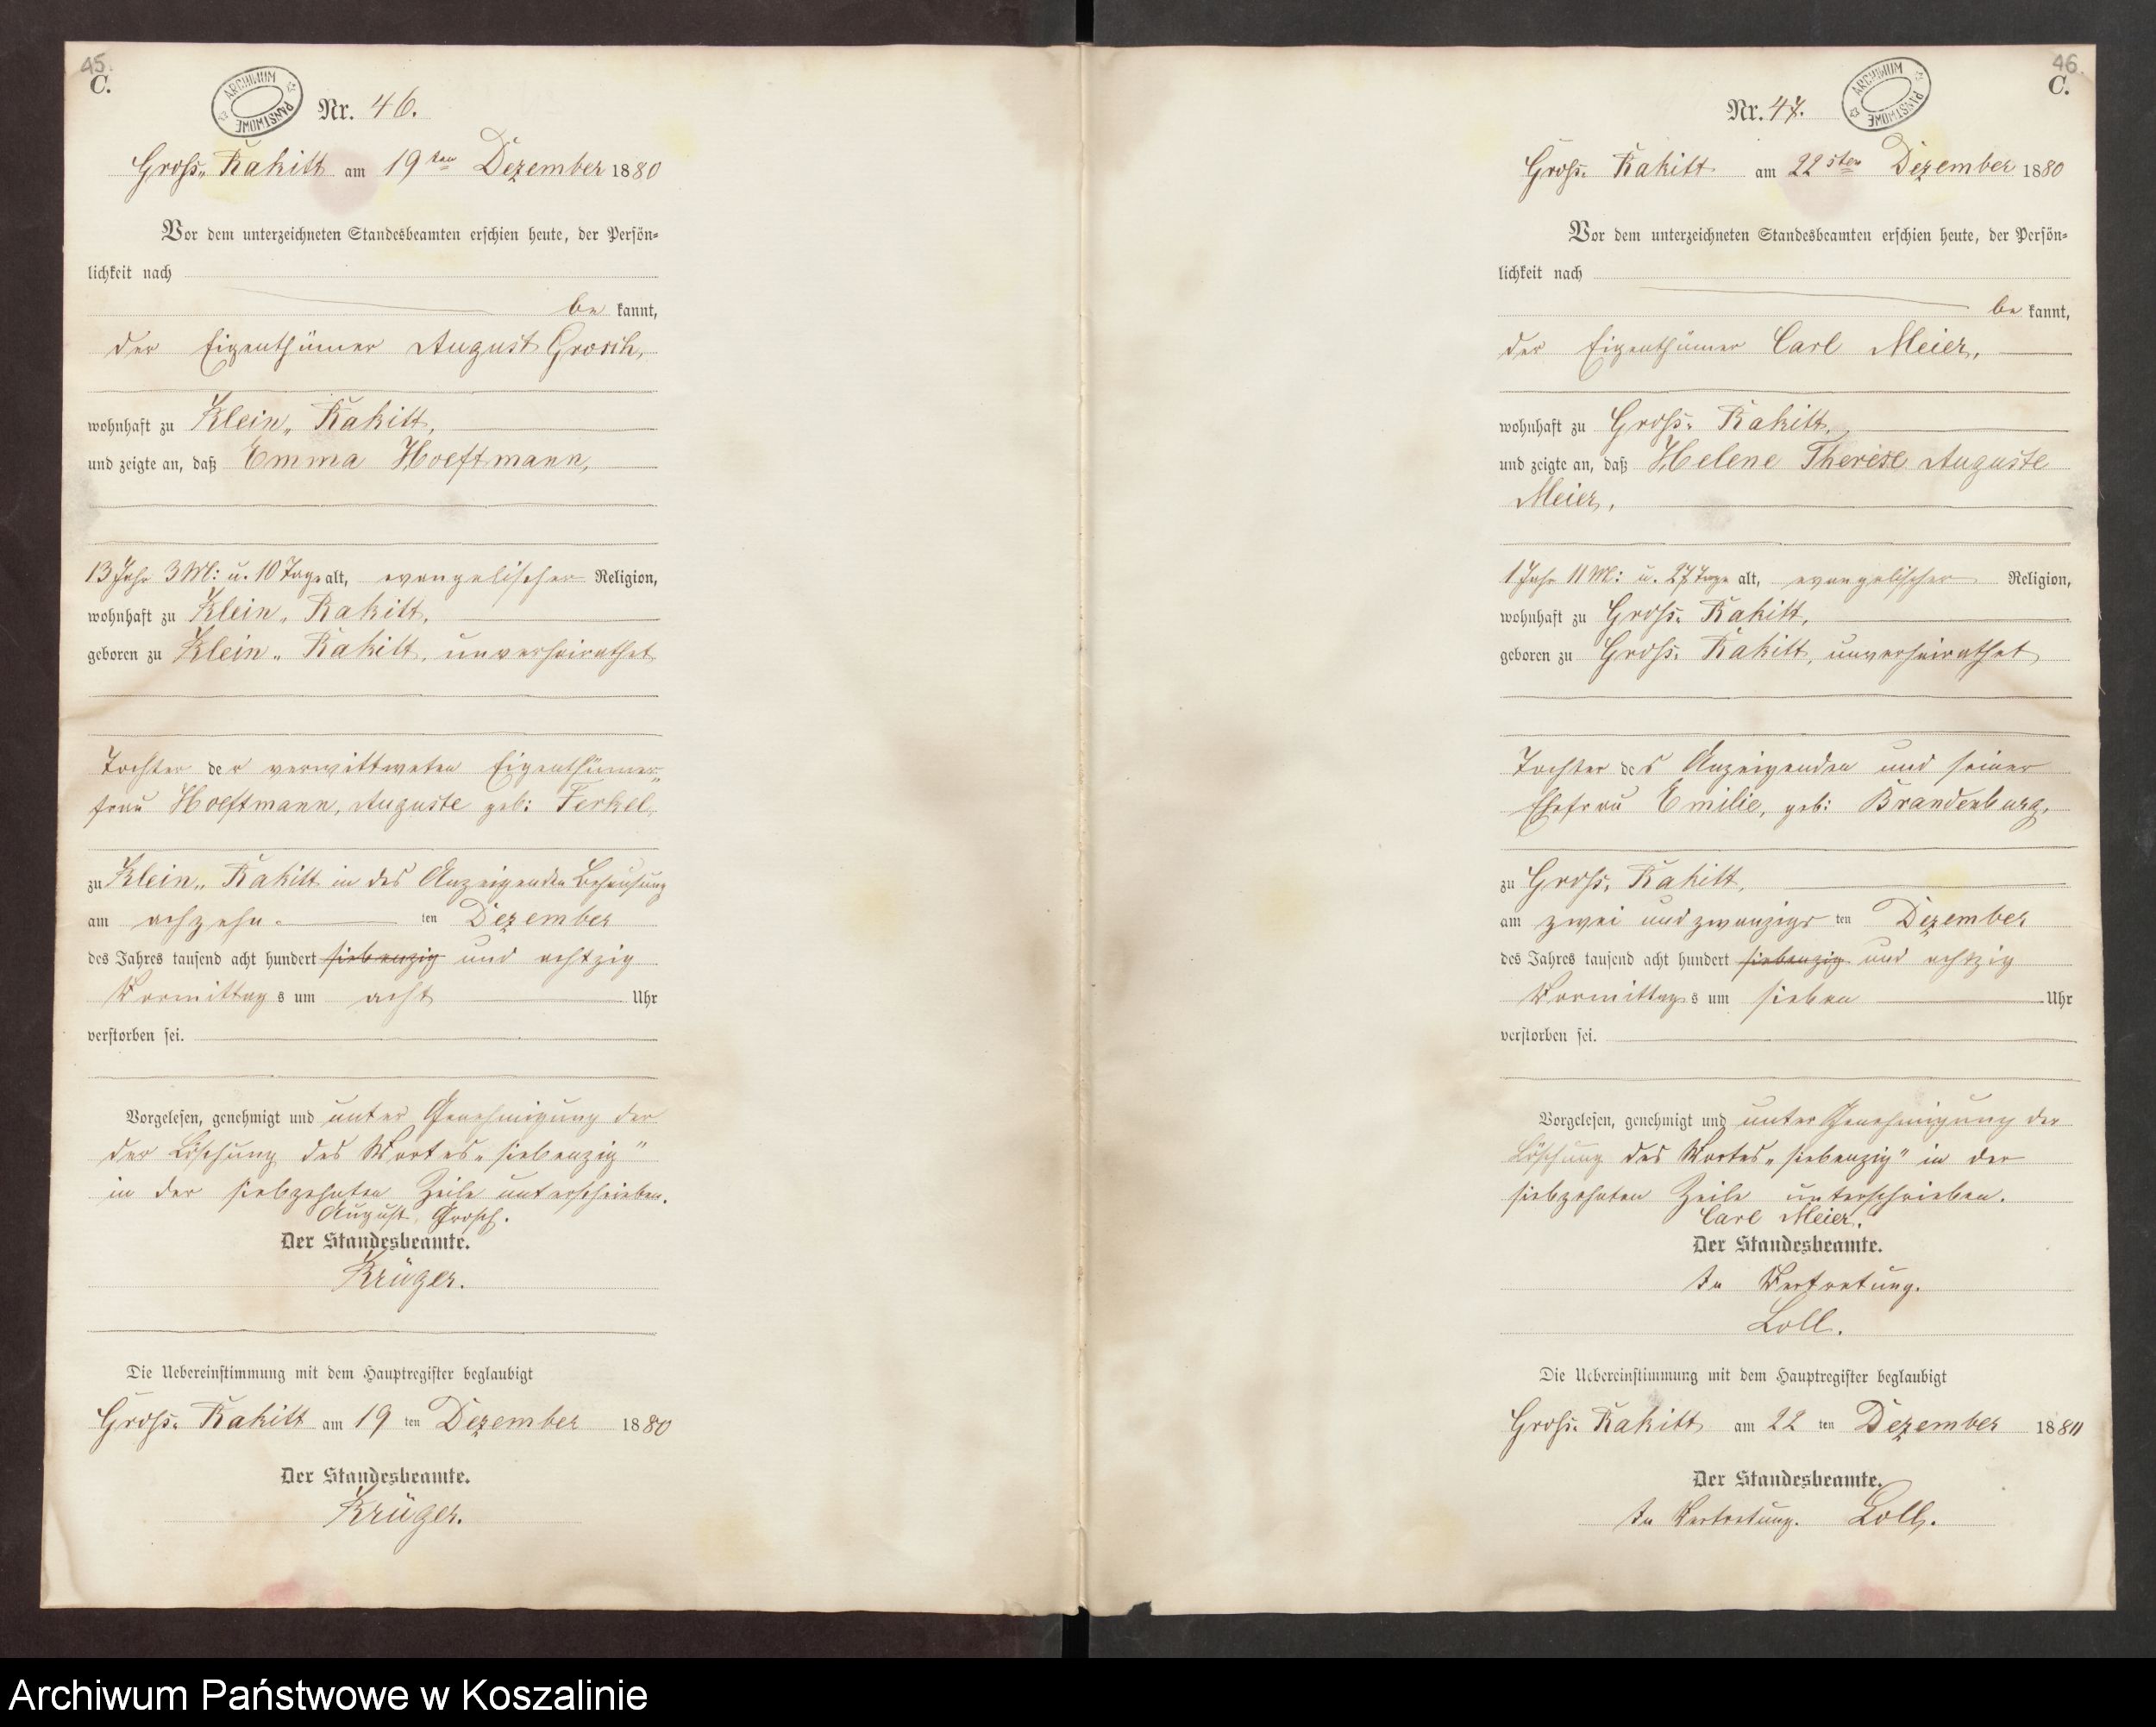 45.
C.
ARCHIWUM PAŃSTWOWE
Nr. 46.
Groß„ Rakitt am 19ten Dezember 1880
Vor dem unterzeichneten Standesbeamten erschien heute, der Persön-
lichkeit nach
be kannt,
der Eigenthümer August Grosch,
wohnhaft zu Klein„ Rakitt,
und zeigte an, daß Emma Hoeftmann,
13 Jahr 3 M: u. 10 Tage alt, evangelischer Religion,
wohnhaft zu Klein„ Rakitt,
geboren zu Klein„ Rakitt, unverheirathet
Tochter der verwittweten Eigenthümer„
frau Hoeftmann, Auguste geb: Ferkel,
zu Klein„ Rakitt in des Anzeigenden Behausung
am achzehn ten Dezember
des Jahres tausend acht hundert siebenzig und achtzig
Vormittags um acht Uhr
verstorben sei.
Vorgelesen, genehmigt und unter Genehmigung der
der Löschung des Wortes „siebenzig"
in der siebzehnten Zeile unterschrieben.
August Grosch.
Der Standesbeamte.
Krüger.
Die Uebereinstimmung mit dem Hauptregister beglaubigt
Groß„ Rakitt am 19 ten Dezember 1880
Der Standesbeamte.
Krüger.
46.
C.
ARCHIWUM PAŃSTWOWE
Nr. 47.
Groß„ Rakitt am 22sten Dezember 1880
Vor dem unterzeichneten Standesbeamten erschien heute, der Persön-
lichkeit nach
be kannt,
der Eigenthümer Carl Meier,
wohnhaft zu Groß„ Rakitt,
und zeigte an, daß Helene Therese Auguste
Meier,
1 Jahr 11 M: u. 27 Tage alt, evangelischer Religion,
wohnhaft zu Groß„ Rakitt,
geboren zu Groß„ Rakitt, unverheirathet
Tochter des Anzeigenden und seiner
Ehefrau Emilie, geb: Brandenburg,
zu Groß„ Rakitt,
am zwei und zwanzigs ten Dezember
des Jahres tausend acht hundert siebenzig und achtzig
Vormittags um sieben Uhr
verstorben sei.
Vorgelesen, genehmigt und unter Genehmigung der
Löschung des Wortes „siebenzig" in der
siebzehnten Zeile unterschrieben.
Carl Meier.
Der Standesbeamte.
In Vertretung.
Loll.
Die Uebereinstimmung mit dem Hauptregister beglaubigt
Groß„ Rakitt am 22 ten Dezember 1880
Der Standesbeamte.
In Vertretung. Loll.
Archiwum Państwowe w Koszalinie